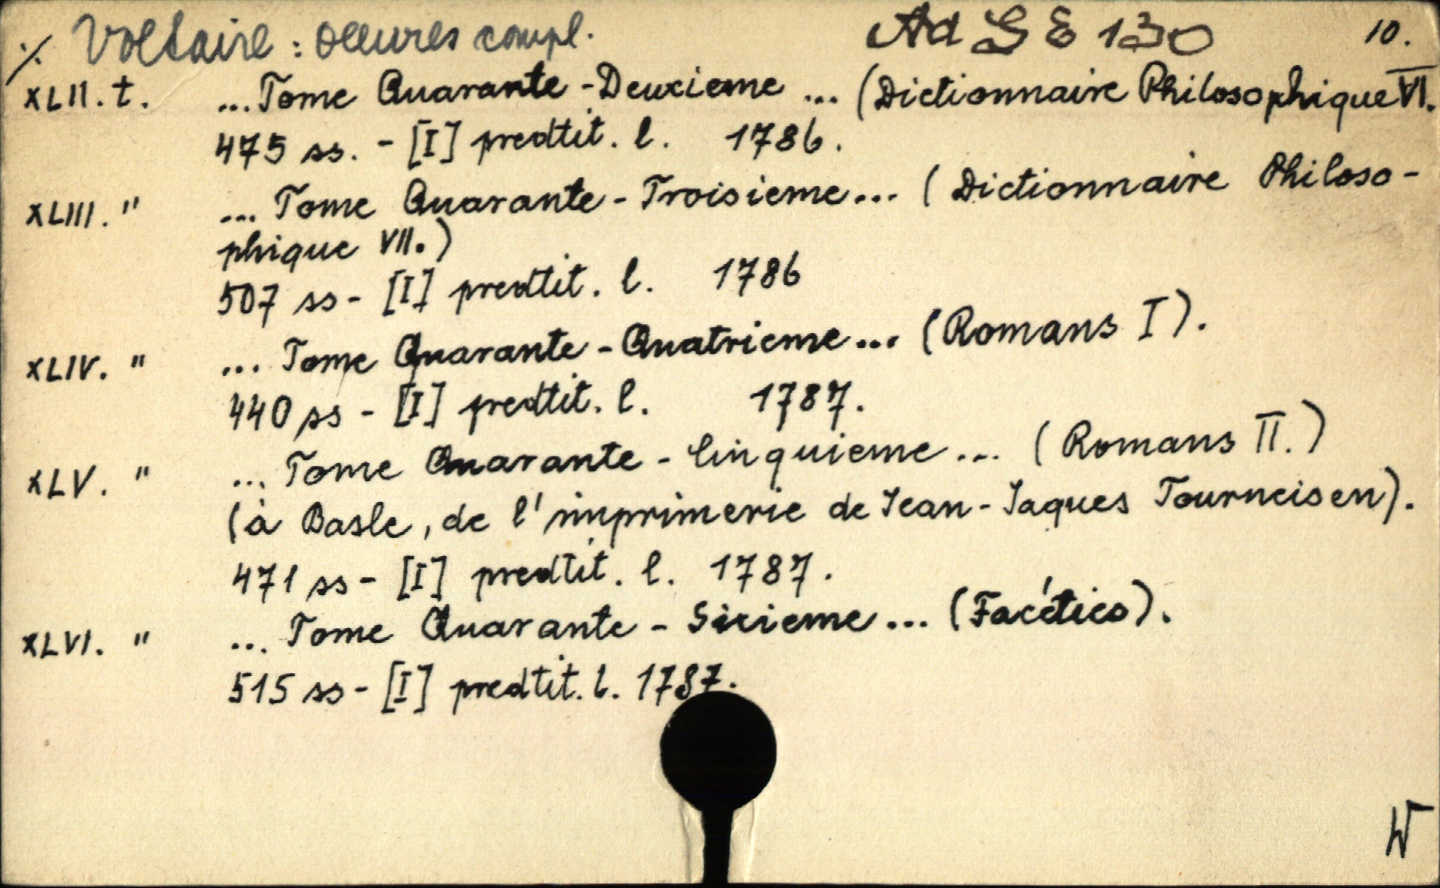 ·/. Voltaire: Oeuvres compl. Ad S E 130 10.
XLII. t. ... Tome Quarante-Deuxieme ... (Dictionnaire Philosophique VI.
475 ss. - [I] predtit. l. 1786.
XLIII. " ... Tome Quarante-Troisieme ... (Dictionnaire Philoso-
phique VII.)
507 ss - [I] predtit. l. 1786
XLIV. " ... Tome Quarante-Quatrieme ... (Romans I).
440 ss - [I] predtit. l. 1787.
XLV. " ... Tome Quarante-Cinquieme ... (Romans II.)
(à Basle, de l'imprimerie de Jean-Jaques Tourneisen).
471 ss - [I] predtit. l. 1787.
XLVI. " ... Tome Quarante-Sixieme ... (Facéties).
515 ss - [I] predtit. l. 1787.
W